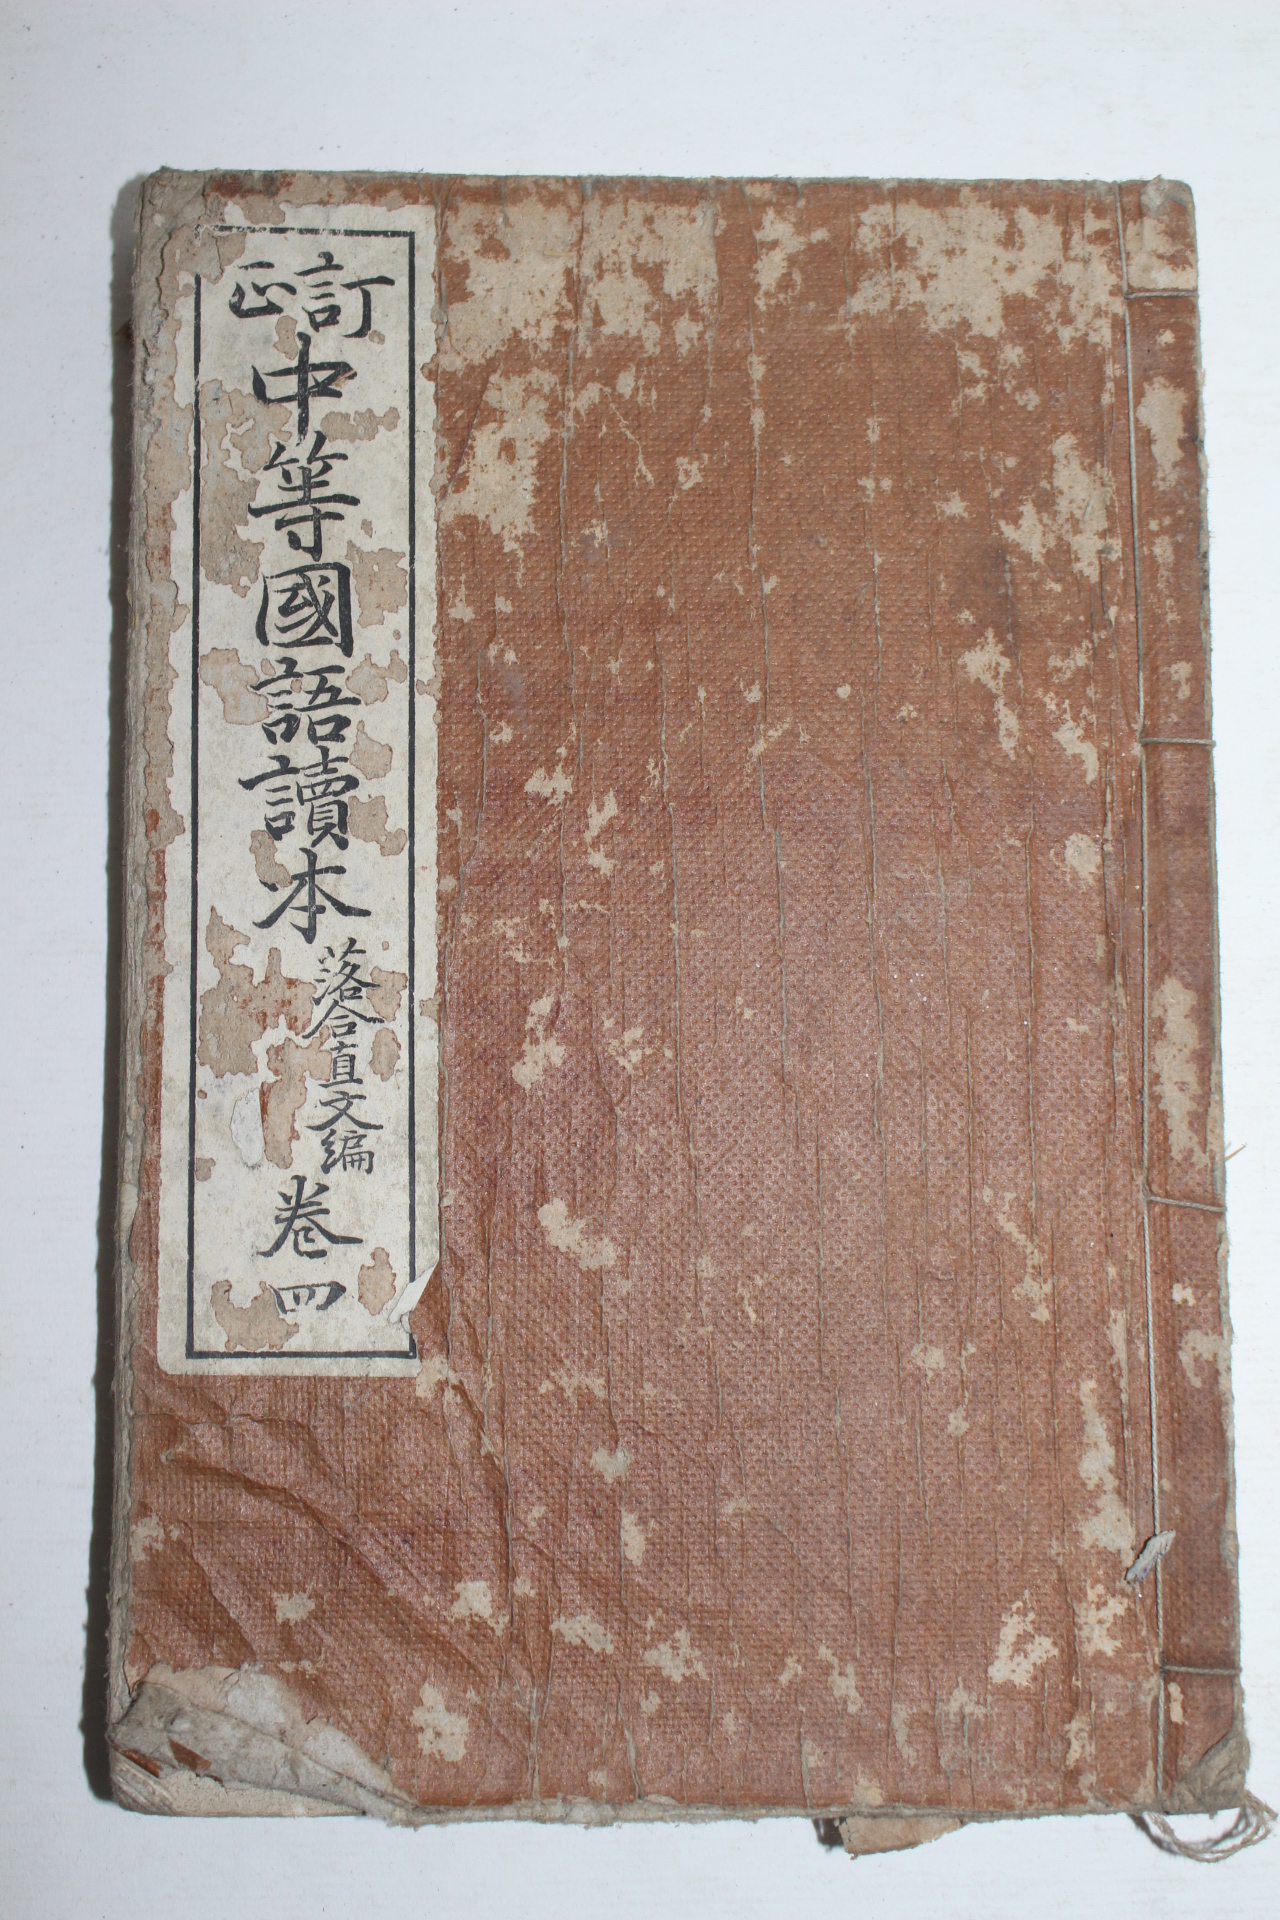 訂正中等國語讀本
落合直文編
卷四